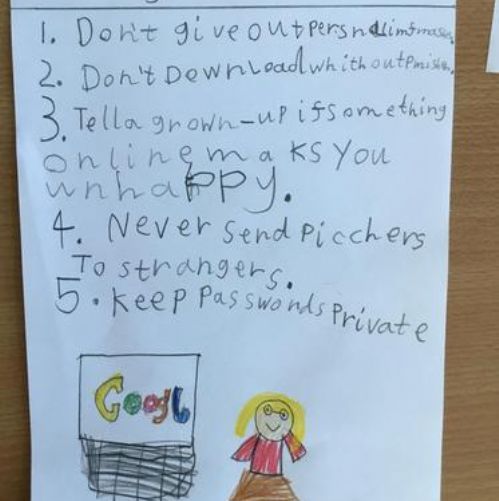 1. Don't give out persnalimfmashon.
2. Don't Download whithout Pmishon.
3. Tell a grown-up if something
online maks you
unhappy.
4. Never send Picchers
To strangers.
5. Keep Passwords Private
Googl